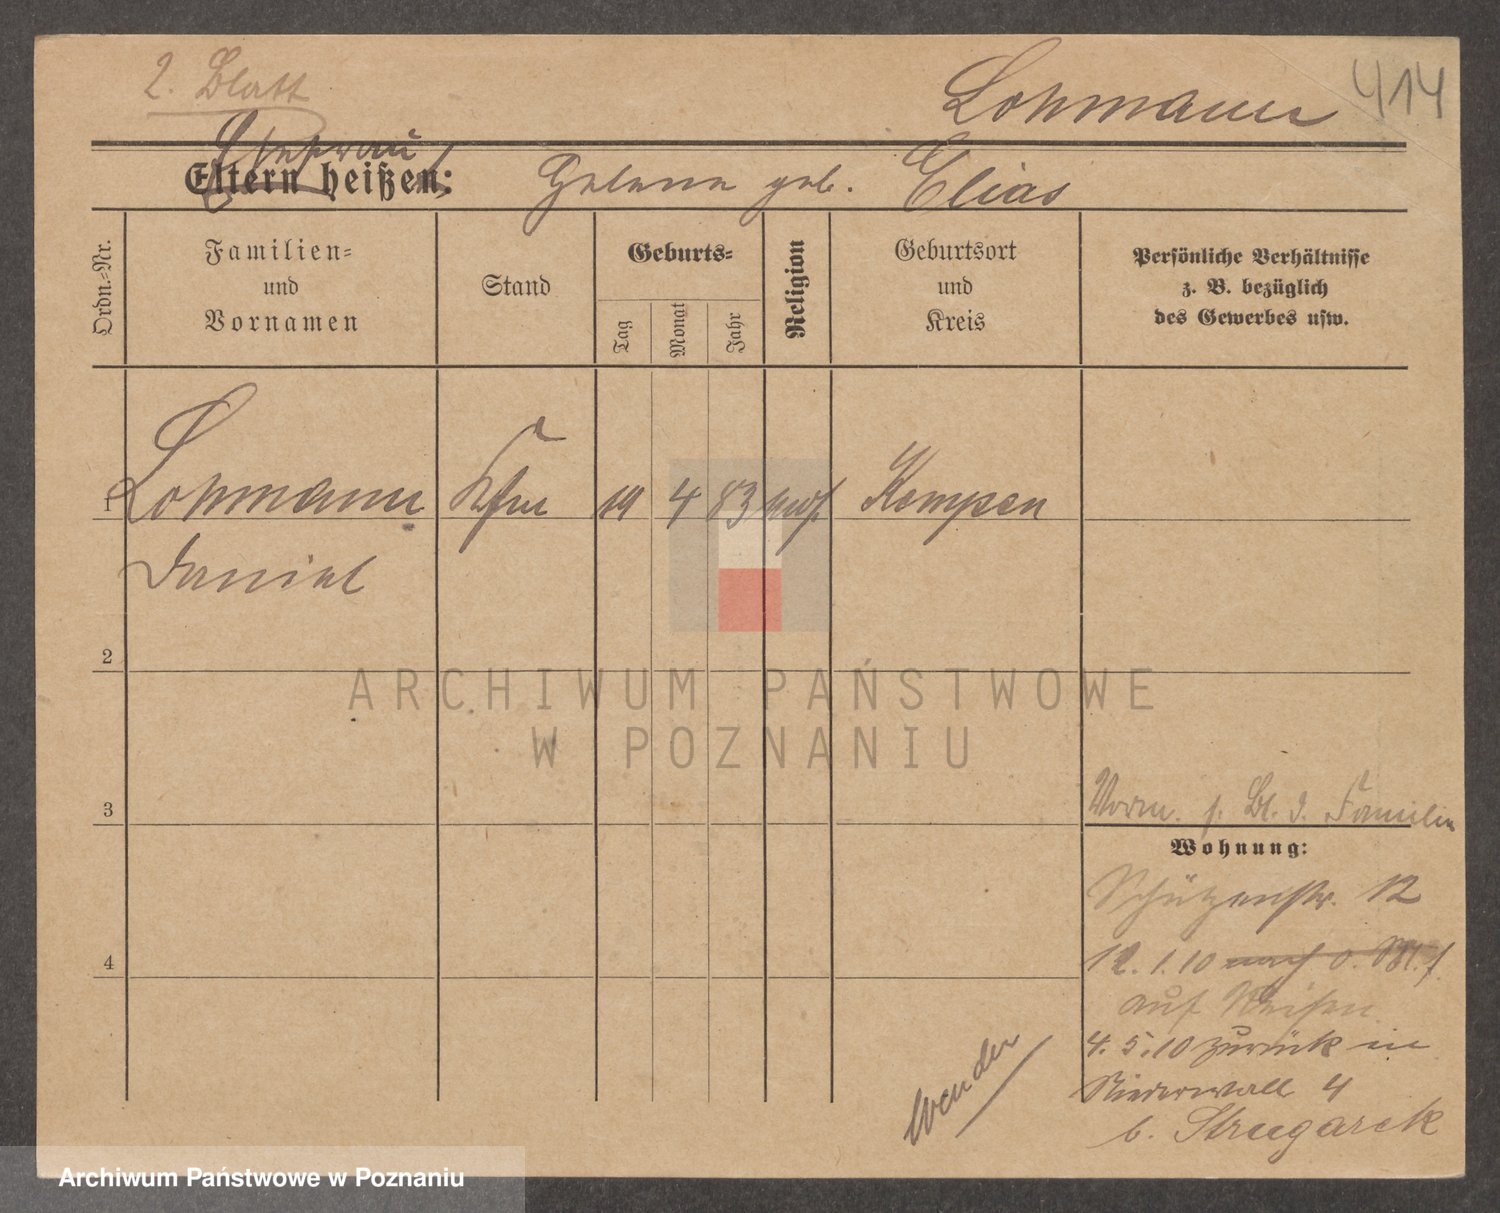 2. Blatt
Lohmann 414
Ehefrau
Eltern heißen: Helene geb. Elias
Ordn.=Nr.
Familien=
und
Vornamen
Stand
Geburts=
Tag
Monat
Jahr
Religion
Geburtsort
und
Kreis
Persönliche Verhältnisse
z. B. bezüglich
des Gewerbes usw.
1 Lohmann Kfm 19 4 83 mos. Kempen
Daniel
2
ARCHIWUM PAŃSTWOWE
W POZNANIU
3
Vorm. s. Bl. d. Familie
Wohnung:
Schützenstr. 12
4
12.1.10 nach o. Bl. f.
auf Reisen
4.5.10 zurück in
Niederwall 4
b. Strugarek
Wenden
Archiwum Państwowe w Poznaniu